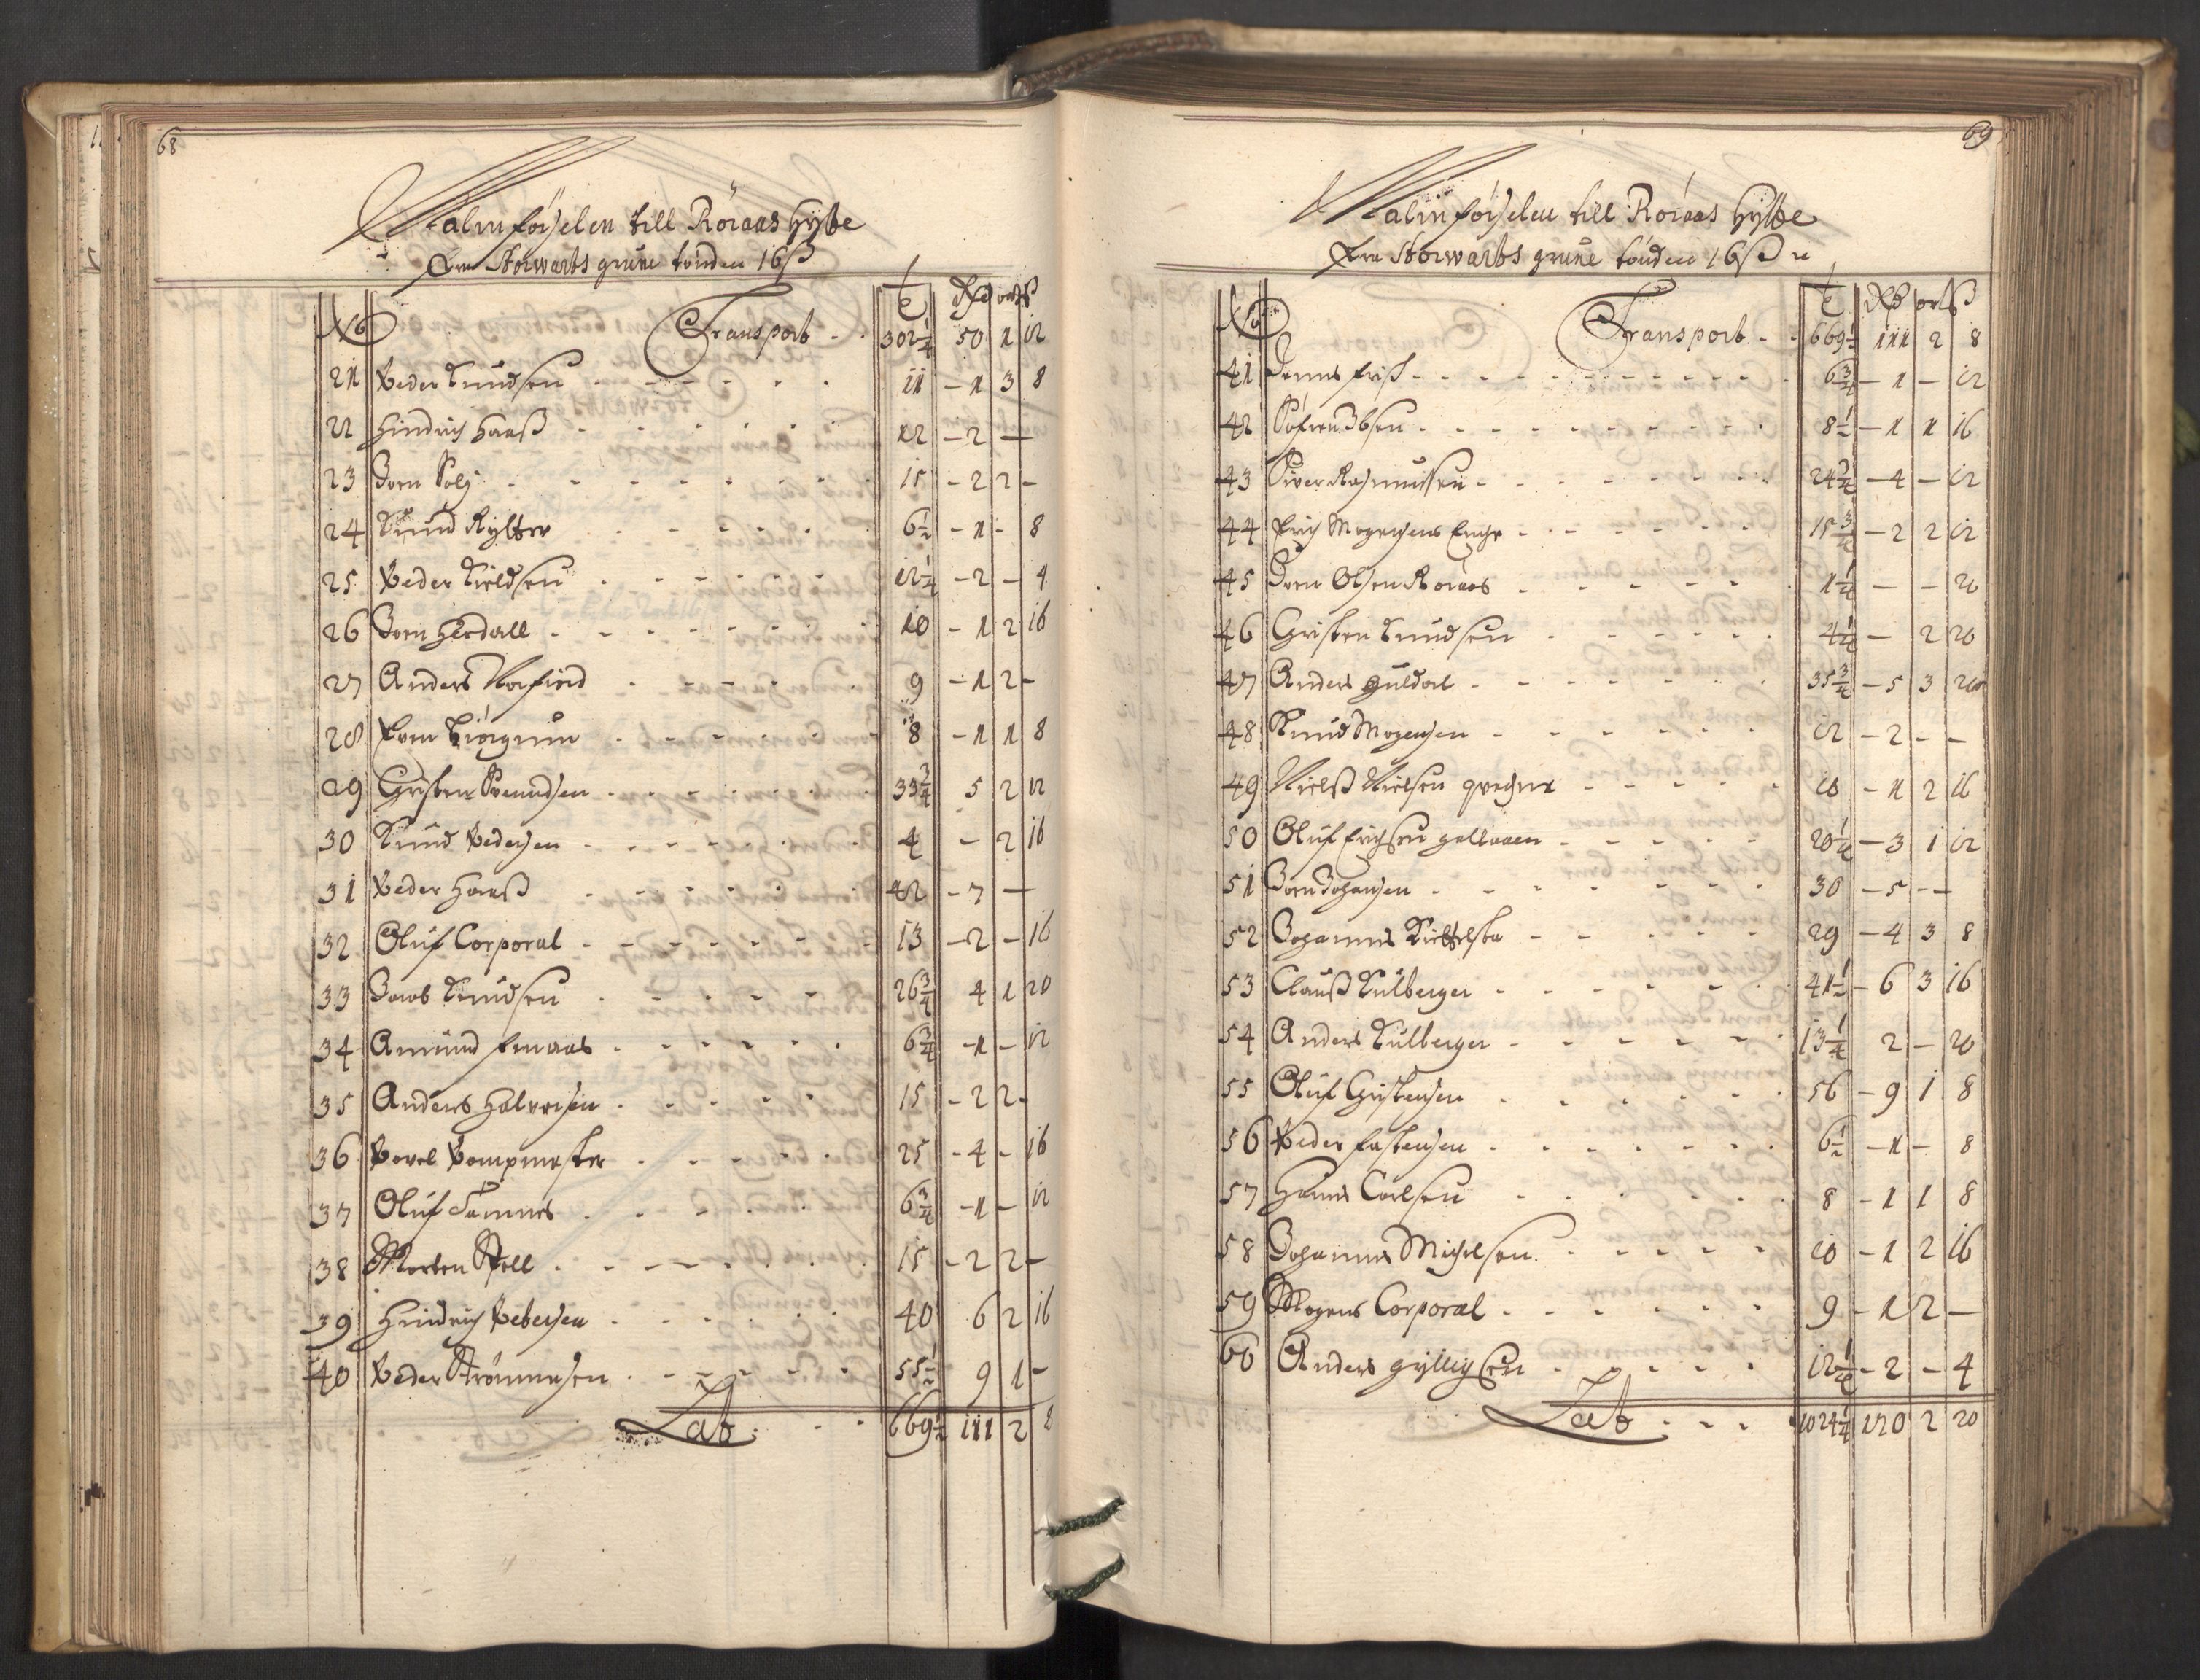 68
Malmförselen till Röraas Hytte
Fra Storwartz grube tönden 16 ß
No t Rdr ort ß
Transport - - 302 1/4 50 1 12
21 Peder Knudsen - - - - - 11 - 1 3 8
22 Hindrich Haaß - - - - - 12 - 2 -
23 Joen Solj - - - - - 15 - 2 2 -
24 Knud Rytter - - - - - 6 1/2 - 1 - 8
25 Peder Kieldsen - - - - - 12 1/4 - 2 - 4
26 Joen Herdall - - - - - 10 - 1 2 16
27 Anders - - - - - 9 - 1 2 -
28 Even - - - - - 8 - 1 1 8
29 Christen Amundsen - - - - - 33 3/4 5 2 12
30 Knud Pedersen - - - - - 4 - 2 16
31 Peder Haaß - - - - - 42 - 7 -
32 Oluf Corporal - - - - - 13 - 2 - 16
33 Jacob Knudsen - - - - - 26 3/4 4 1 20
34 Amund - - - - - 6 3/4 - 1 - 12
35 Anders Halvorsen - - - - - 15 - 2 2 -
36 Povel Pompmester - - - - - 25 - 4 - 16
37 Oluf Tamnes - - - - - 6 3/4 - 1 - 12
38 Morten Stell - - - - - 15 - 2 2 -
39 Hindrich Petersen - - - - - 40 6 2 16
40 Peder Strömmesen - - - - - 55 1/2 9 1 -
Lat - - - 669 1/2 111 2 8
69
Malmförselen till Röraas Hytte
Fra Storwartz grube tönden 16 ß
No t Rdr ort ß
Transport - - 669 1/2 111 2 8
41 Dennis Friß - - - - - 6 3/4 - 1 - 12
42 Söfren Ibsen - - - - - 8 1/2 - 1 1 16
43 Siver Rasmussen - - - - - 24 3/4 - 4 - 12
44 Erich Mogensens Enche - - - - - 15 3/4 - 2 2 12
45 Joen Olsen Röraas - - - - - 1 1/4 - - 20
46 Christen Knudsen - - - - - 4 1/4 - 2 20
47 Anders Guldal - - - - - 35 3/4 - 5 3 20
48 Knud Mogensen - - - - - 12 - 2 - -
49 Nielß Nielsen - - - - - 10 - 1 2 16
50 Oluf Erichsen Gallaaen - - - - - 20 1/4 - 3 1 12
51 Joen Johansen - - - - - 30 - 5 - -
52 Johannes - - - - - 29 - 4 3 8
53 Clauß Kulberger - - - - - 41 1/2 - 6 3 16
54 Anders Kulberger - - - - - 13 1/4 2 - 20
55 Oluf Christensen - - - - - 56 - 9 1 8
56 Peder Fastensen - - - - - 6 1/2 - 1 - 8
57 Hanns Carlsen - - - - - 8 - 1 1 8
58 Johannes Michelsen - - - - - 10 - 1 2 16
59 Mogens Corporal - - - - - 9 - 1 2 -
60 Anders Gyllichsen - - - - - 12 1/4 - 2 - 4
Lat - - - 1024 1/4 170 2 20